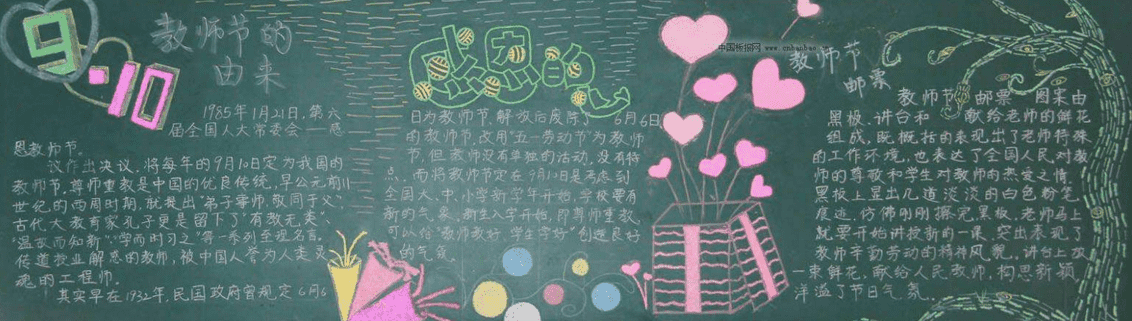 9·10
教师节的
由来
1985年1月21日,第六
届全国人大常委会一
恩教师节。
议作出决议,将每年的9月10日定为我国的
教师节。尊师重教是中国的优良传统,早公元前11
世纪的西周时期,就提出“弟子事师,敬同于父”,
古代大教育家孔子更是留下了“有教无类”、
“温故而知新”、“学而时习之”等一系列至理名言。
传道授业解惑的教师,被中国人誉为人类灵
魂的工程师。
其实早在1932年,民国政府曾规定6月6
感恩
日为教师节,解放后废除了6月6日
的教师节,改用“五一劳动节”为教师
节,但教师没有单独的活动,没有特
点。而将教师节定在9月10日是考虑到
全国大、中、小学新学年开始,学校要有
新的气象。新生入学开始,即尊师重教,
可以给“教师教好,学生学好”创造良好
的气氛。
中国板报网 www.cnbanbao.
教师节
邮票
教师节 邮票 图案由
黑板、讲台和 献给老师的鲜花
组成,既概括的表现出了老师特殊
的工作环境,也表达了全国人民对教
师的尊敬和学生对教师的热爱之情。
黑板上显出几道淡淡的白色粉笔
痕迹,仿佛刚刚擦完黑板,老师马上
就要开始讲授新的一课,突出表现了
教师辛勤劳动的精神风貌。讲台上放
一束鲜花,献给人民教师,构思新颖,
洋溢了节日气氛。